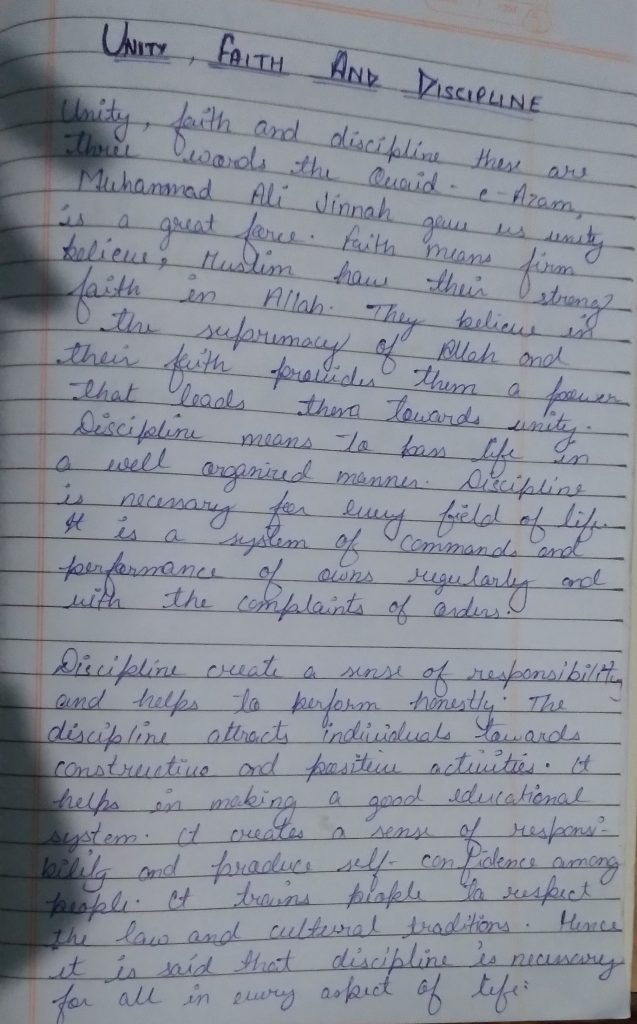 UNITY, FAITH AND DISCIPLINE
Unity, faith and discipline these are
three words the Quaid-e-Azam,
Muhammad Ali Jinnah gave us unity
is a great force. Faith means firm
believe, Muslim have their strong
faith in Allah. They believe in
the supremacy of Allah and
their faith provides them a power
that leads them towards unity.
Discipline means to pass life in
a well organized manner. Discipline
is necessary for every field of life.
It is a system of commands and
performance of owns regularly and
with the complaints of orders.
Discipline create a sense of responsibility
and helps to perform honestly. The
discipline attracts individuals towards
constructive and positive activities. It
helps in making a good educational
system. It creates a sense of responsi-
bility and produce self-confidence among
people. It trains people to respect
the law and cultural traditions. Hence
it is said that discipline is necessary
for all in every aspect of life: